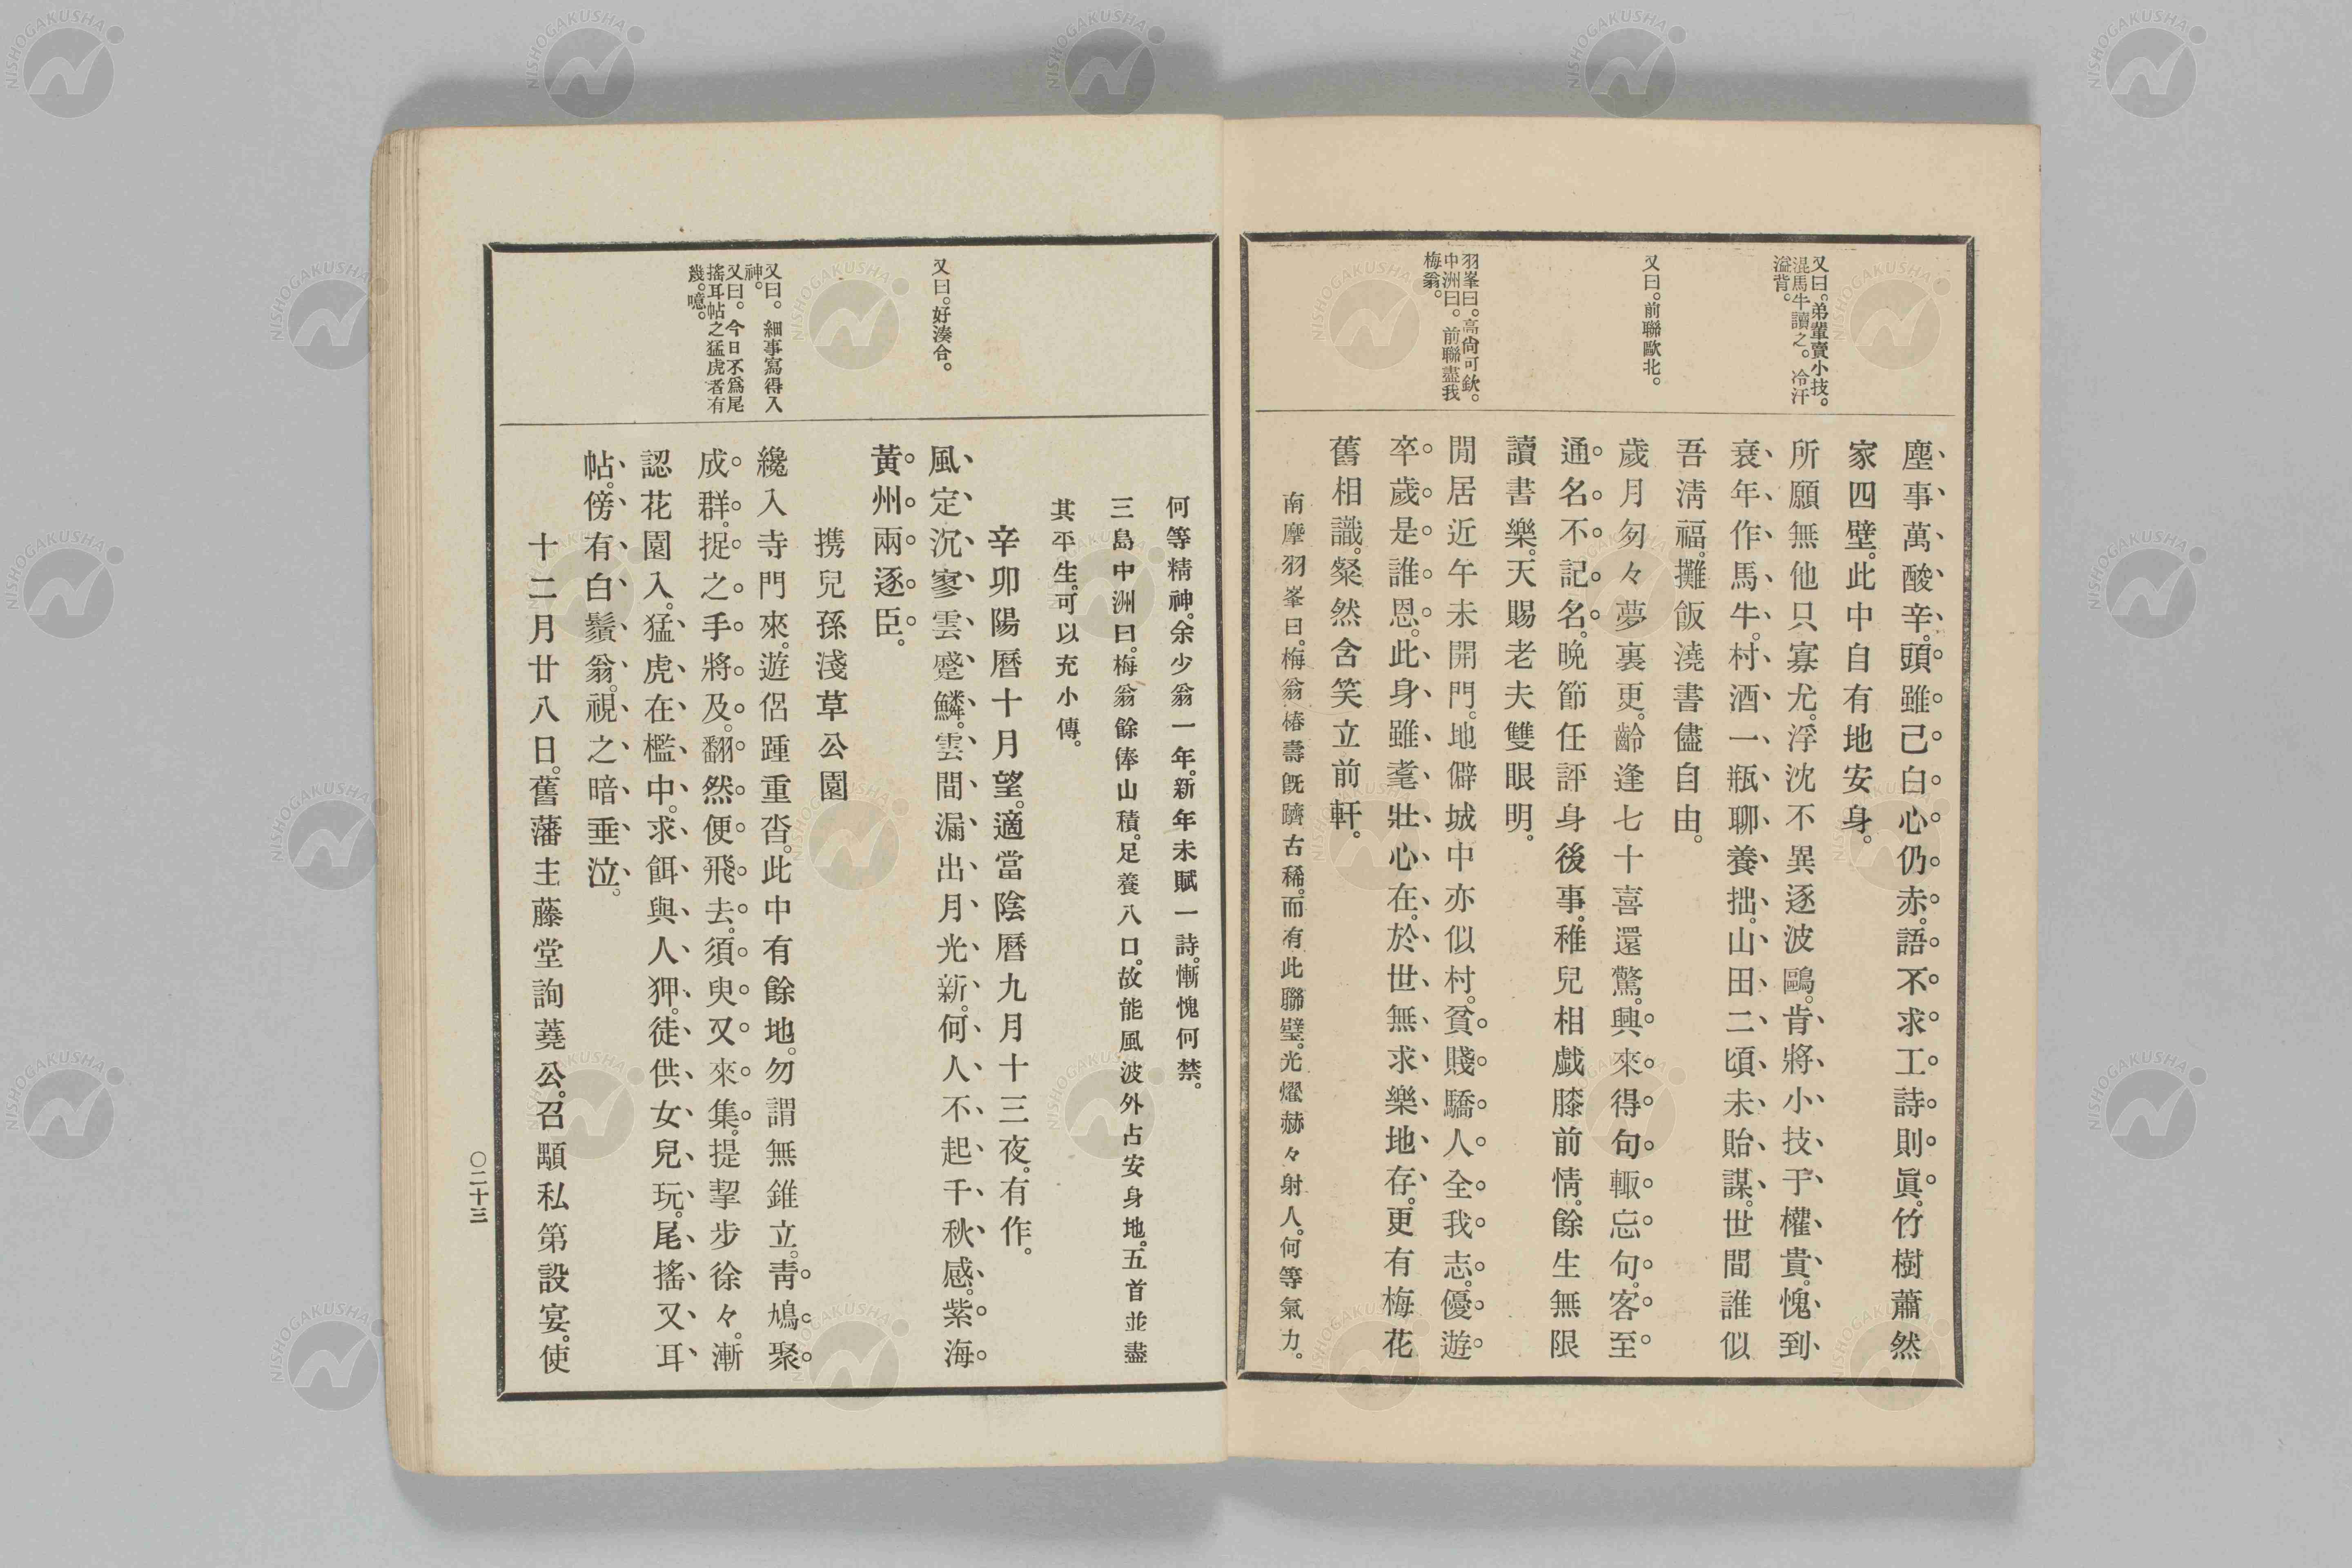 又曰。弟輩賣小技。
混馬牛讀之。冷汗
溢背。
又曰。前聯歐北。
羽峯曰。高尙可欽。
中洲曰。前聯盡我
梅翁。
塵事萬酸辛。頭雖已白心仍赤。語不求工詩則眞。竹樹蕭然
家四壁。此中自有地安身。
所願無他只寡尤。浮沈不異逐波鷗。肯將小技于權貴。愧到
衰年作馬牛。村酒一瓶聊養拙。山田二頃未貽謀。世間誰似
吾淸福。攤飯澆書儘自由。
歲月匆々夢裏更。齡逢七十喜還驚。興來得句輙忘句。客至
通名不記名。晩節任評身後事。稚兒相戲膝前情。餘生無限
讀書樂。天賜老夫雙眼明。
閒居近午未開門。地僻城中亦似村。貧賤驕人全我志。優遊
卒歲是誰恩。此身雖耄壯心在。於世無求樂地存。更有梅花
舊相識。粲然含笑立前軒。
南摩羽峯曰。梅翁椿壽旣躋古稀。而有此聯璧。光燿赫々射人。何等氣力。
又曰。好湊合。
又曰。細事寫得入
神。
又曰。今日不爲尾
搖耳帖之猛虎者有
幾。噫。
何等精神。余少翁一年。新年未賦一詩。慚愧何禁。
三島中洲曰。梅翁餘俸山積。足養八口。故能風波外占安身地。五首並盡
其平生。可以充小傳。
辛卯陽曆十月望。適當陰曆九月十三夜。有作。
風定沉寥雲蹙鱗。雲間漏出月光新。何人不起千秋感。紫海
黃州兩逐臣。
携兒孫淺草公園
纔入寺門來。遊侶踵重沓。此中有餘地。勿謂無錐立。靑鳩聚
成群。捉之手將及。翻然便飛去。須臾又來集。提挈步徐々。漸
認花園入。猛虎在檻中。求餌與人狎。徒供女兒玩。尾搖又耳
帖。傍有白鬚翁。視之暗垂泣。
十二月廿八日。舊藩主藤堂詢蕘公。召顒私第設宴。使
〇二十三
NISHOGAKUSHA